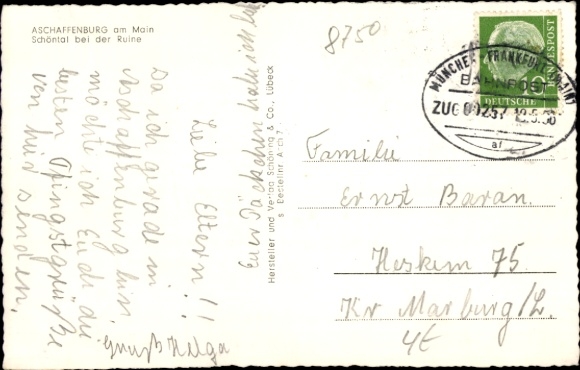 ASCHAFFENBURG am Main
Schöntal bei der Ruine
Liebe Eltern!!
Da ich gerade in
Aschaffenburg bin
möchte ich Euch die
besten Pfingstgrüße
von hier senden.
Gruß Helga
Euer Päckchen habe ich
Hersteller und Verlag Schöning & Co., Lübeck
8750
MÜNCHEN-FRANKFURT (MAIN)
BAHNPOST
ZUG
af
DEUTSCHE
BUNDESPOST
10
Familie
Ernst Baran.
Heskem 75
Kr Marburg/L.